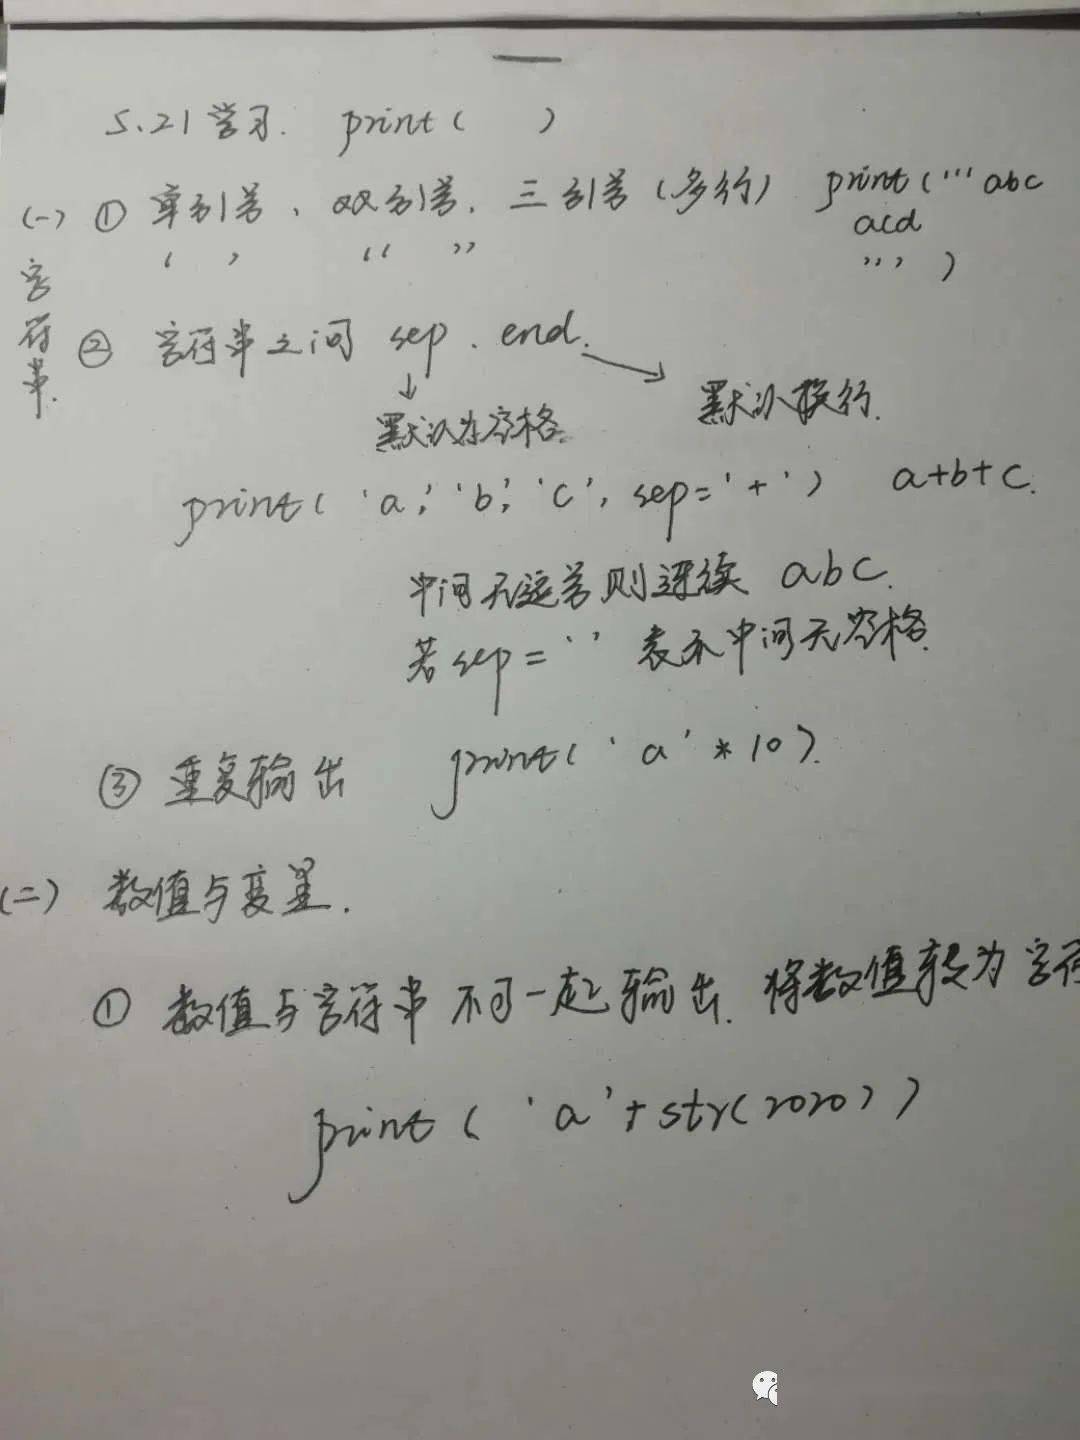 5.21学习. print( )
(一) ① 单引号、双引号、三引号(多行) print('''abc
' ' “ ” acd
''' )
字符串.
② 字符串之间 sep、end.
默认为空格. 默认换行.
print('a','b','c',sep='+') a+b+c.
中间无逗号则连续 abc.
若sep='' 表示中间无空格.
③ 重复输出 print('a'*10).
(二) 数值与变量.
① 数值与字符串不可一起输出. 将数值转为字符
print('a'+str(2020))